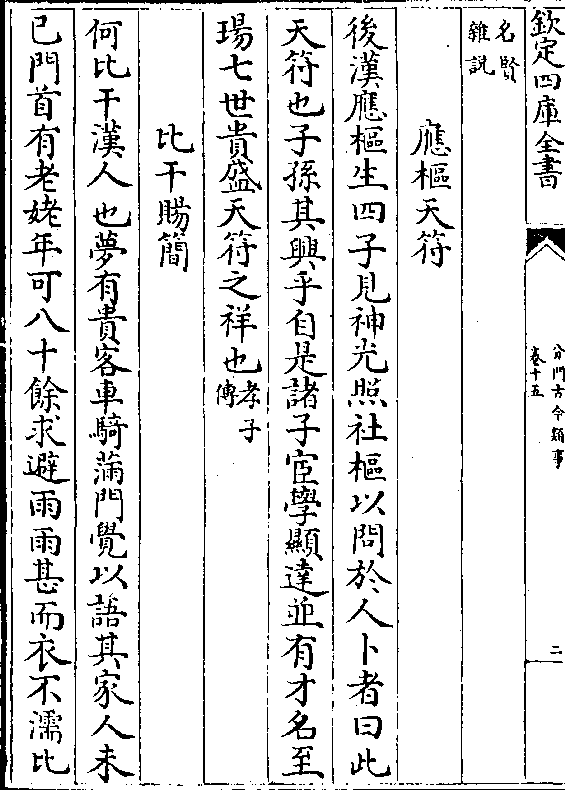 欽定四庫全書
分門古今類事
卷十五
二
名賢
雜説
應樞天符
後漢應樞生四子見神光照社樞以問於人卜者曰此
天符也子孫其興乎自是諸子宦學顯達並有才名至
瑒七世貴盛天符之祥也孝子
傳
比干賜簡
何比干漢人也夢有貴客車騎滿門覺以語其家人未
已門首有老姥年可八十餘求避雨雨甚而衣不濡比